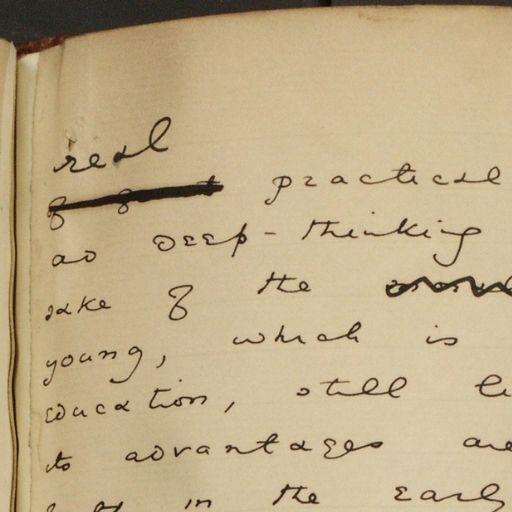 real
practical
as deep-thinking
sake of the
young, which is
education, still
its advantages are
in the early